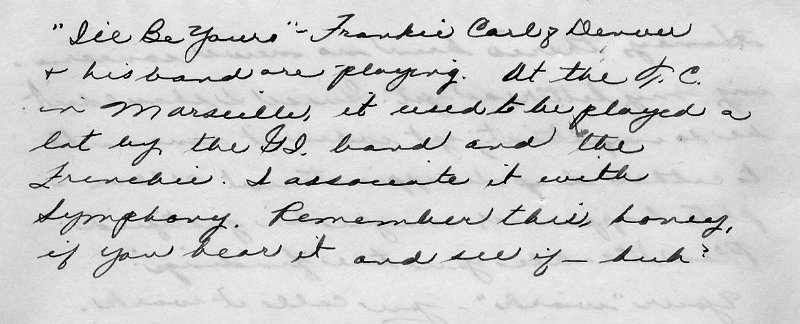 "I'll Be Yours" - Frankie Carl & Denver
& his band are playing. At the T. C.
in Marseille, it used to be played a
lot by the GI. band and the
Frenchie. I associate it with
Symphony. Remember this, honey,
if you hear it and see if - huh?